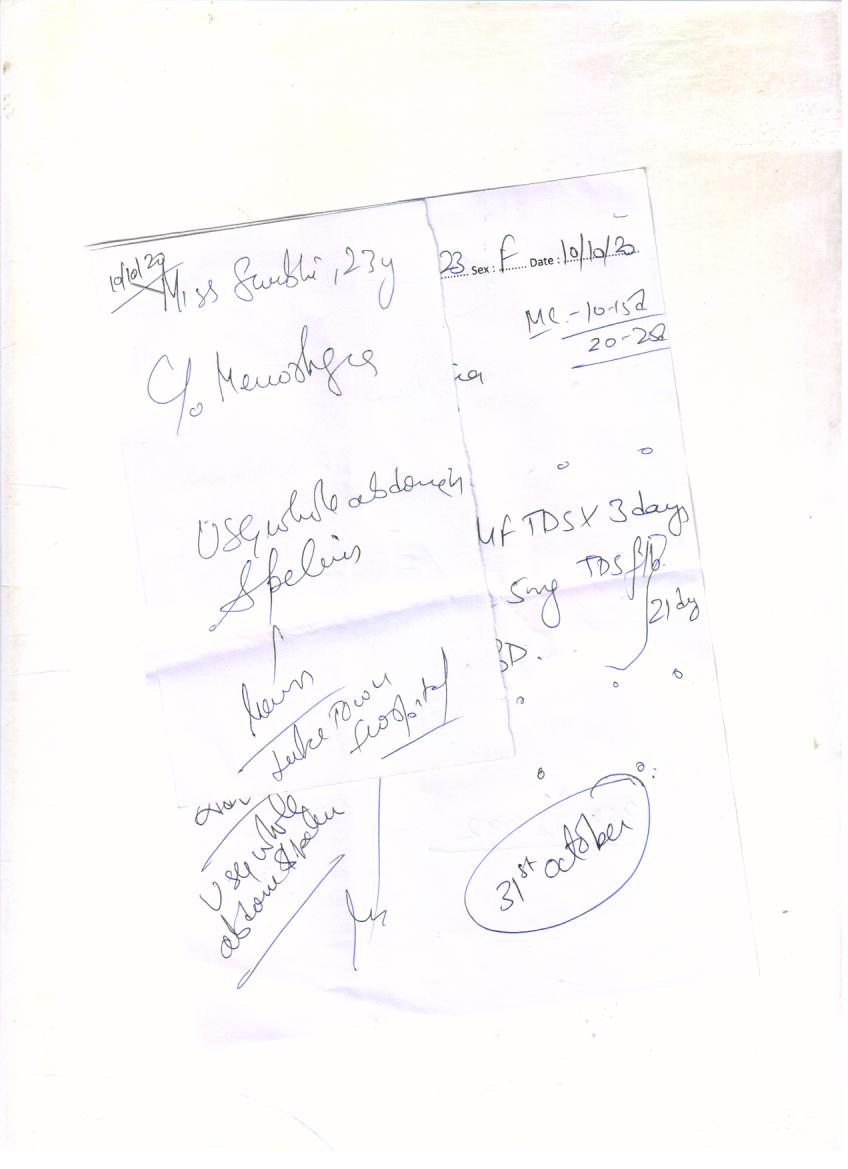 10/10/20
Miss 23y
C/o Menorrhgia
USG whole abdomen
& pelvis
Lake Town
Hospital
23 Sex: F Date: 10/10/20
MC - 10-15d
20-25d
ia
MF TDS X 3 days
5mg TDS
21 dy
BD.
USG whole
abdom & pelvis
31st october